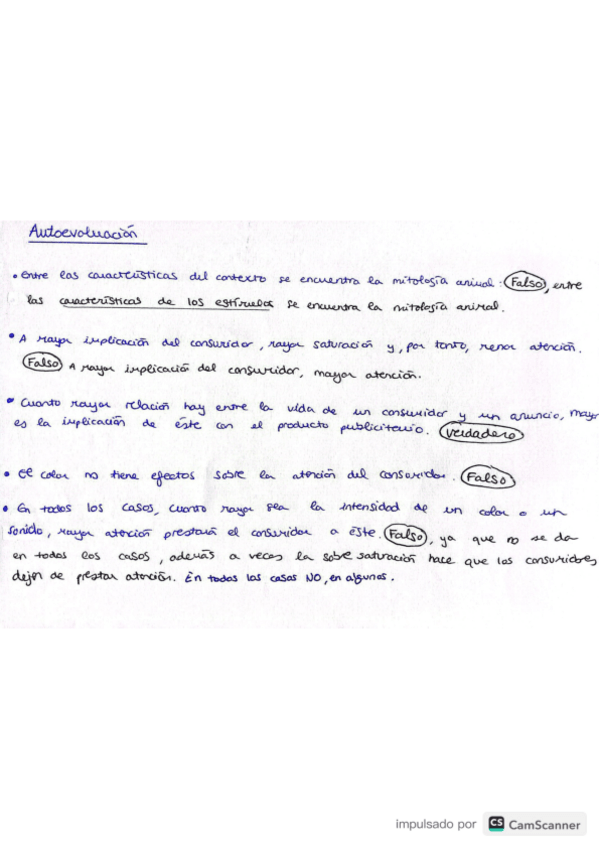 Autoevaluación
• Entre las características del contexto se encuentra la mitología animal: Falso, entre
las características de los estímulos se encuentra la mitología animal.
• A mayor implicación del consumidor, mayor saturación y, por tanto, menor atención.
Falso A mayor implicación del consumidor, mayor atención.
• Cuanto mayor relación hay entre la vida de un consumidor y un anuncio, mayor
es la implicación de éste con el producto publicitario. Verdadero
• El color no tiene efectos sobre la atención del consumidor. Falso
• En todos los casos, cuanto mayor sea la intensidad de un color o un
sonido, mayor atención prestará el consumidor a éste. Falso, ya que no se da
en todos los casos, además a veces la sobresaturación hace que los consumidores
dejen de prestar atención. En todas las casos NO, en algunos.
impulsado por CS CamScanner